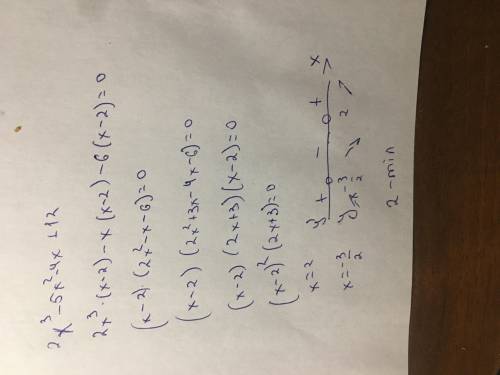 2x³-5x²-4x+12
2x³·(x-2)-x(x-2)-6(x-2)=0
(x-2)·(2x²-x-6)=0
(x-2)(2x²+3x-4x-6)=0
(x-2)(2x+3)(x-2)=0
(x-2)²(2x+3)=0
x=2 y' + - + x
x=-3/2 y -3/2 2
2-min